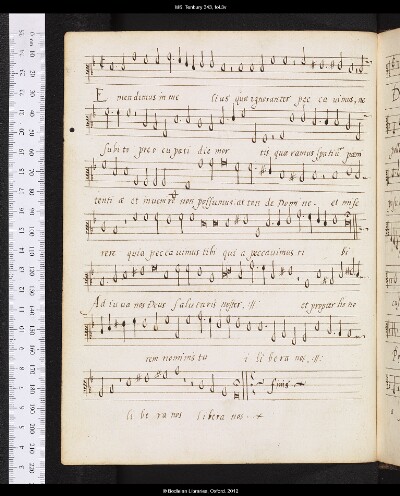 MS. Tenbury 343, fol.3v
Emendemus in me lius quæ ignoranter pec ca uimus, ne
subito preo cupati die mor tis quæramus spatiū pœni
tenti æ et inuenire non possumus. atten de Domi ne. et mise
rere quia peccauimus tibi qui a peccauimus ti bi
Ad iu ua nos Deus salutaris noster, :||: et propter ho no
rem nominis tu i li be ra nos, :||:
finis
li be ra nos libera nos.
© Bodleian Libraries, Oxford, 2013